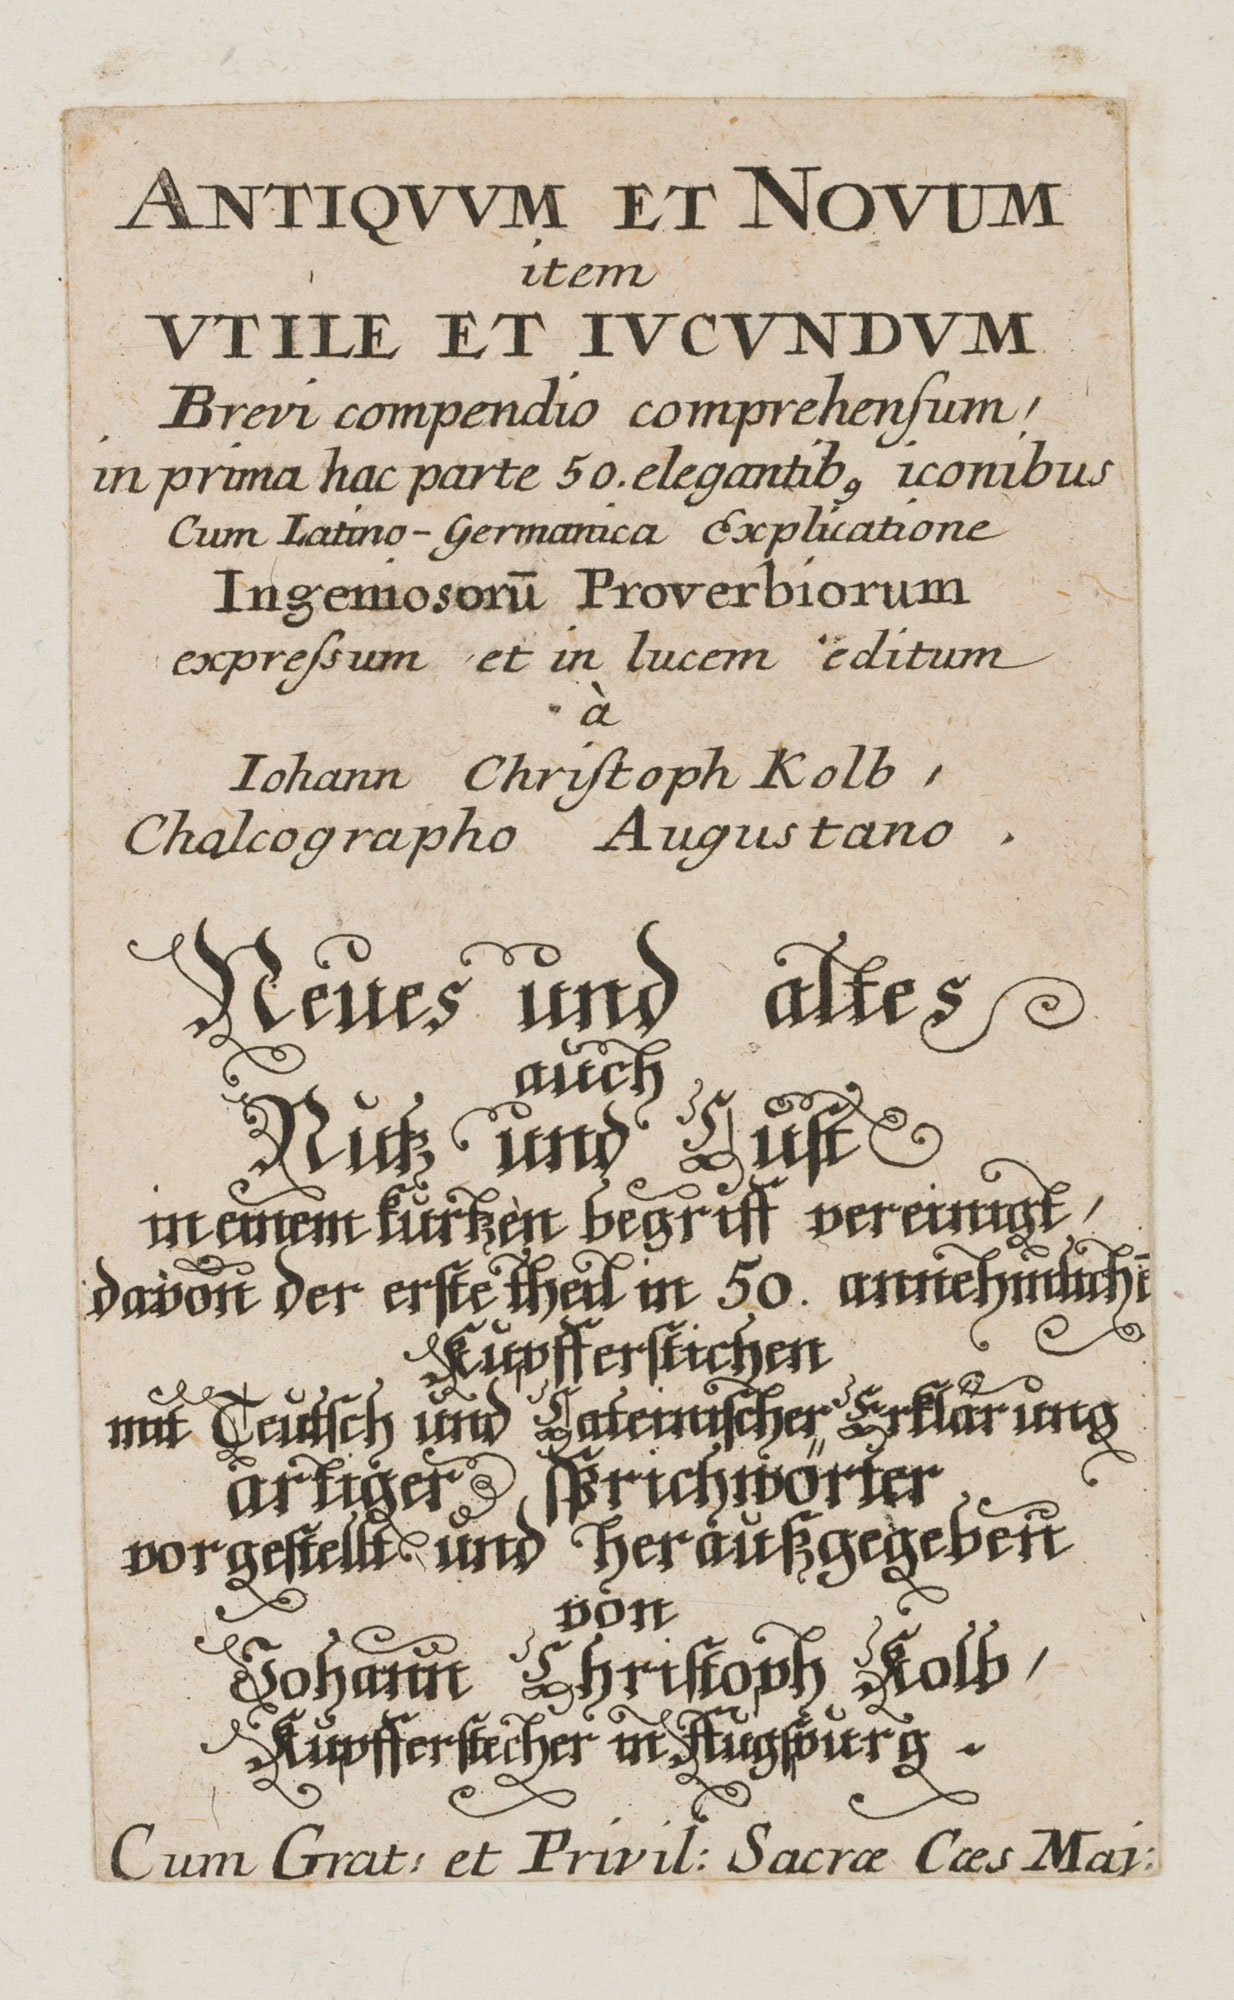 ANTIQVVM ET NOVUM
item
VTILE ET IVCVNDVM
Brevi compendio comprehenſum,
in prima hac parte 50. elegantibꝰ iconibus
Cum Latino-Germanica Explicatione
Ingeniosorū Proverbiorum
expreſsum et in lucem editum
à
Iohann Chriſtoph Kolb,
Chalcographo Augustano.
Neues und altes
auch
Nutz und Luſt
in einem kurtzen begriff vereinigt,
davon der erſte theil in 50. annehmlichē
Kupfferſtichen
mit Teutſch und Lateiniſcher Erklärung
artiger ſprichwörter
vorgeſtellt und heraußgegeben
von
Johann Chriſtoph Kolb,
Kupfferſtecher in Augſpurg.
Cum Grat: et Privil: Sacræ Cæs Maj: